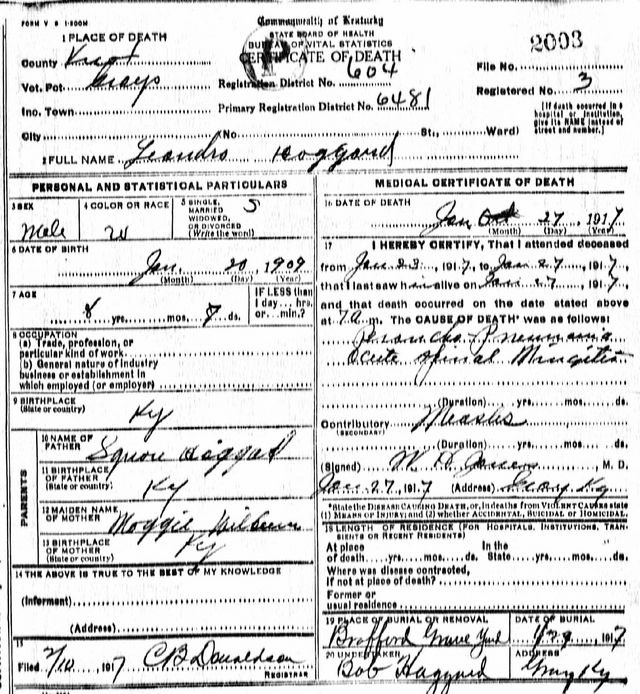 FORM V S 1-500M
Commonwealth of Kentucky
STATE BOARD OF HEALTH
BUREAU OF VITAL STATISTICS
CERTIFICATE OF DEATH
1 PLACE OF DEATH
County Knox
Vot. Pct Grays
Inc. Town
City No St., Ward)
Registration District No. 604
Primary Registration District No. 6481
2003
File No.
Registered No. 3
[If death occurred in a hospital or institution, give its NAME instead of street and number.]
2 FULL NAME Leandro Hoggard
PERSONAL AND STATISTICAL PARTICULARS
3 SEX
Male
4 COLOR OR RACE
W
5 SINGLE, MARRIED WIDOWED, OR DIVORCED (Write the word) S
6 DATE OF BIRTH
Jan. 20, 1909
(Month) (Day) (Year)
7 AGE
8 yrs. mos. 8 ds.
IF LESS than 1 day... hrs. or... min.?
8 OCCUPATION
(a) Trade, profession, or particular kind of work
(b) General nature of industry business or establishment in which employed (or employer)
9 BIRTHPLACE
(State or country) Ky
PARENTS
10 NAME OF FATHER Squire
11 BIRTHPLACE OF FATHER (State or country) Ky
12 MAIDEN NAME OF MOTHER Moggie
13 BIRTHPLACE OF MOTHER (State or country) Ky
14 THE ABOVE IS TRUE TO THE BEST OF MY KNOWLEDGE
(Informant)
(Address)
15
Filed 2/10, 1917 C B Donaldson
REGISTRAR
MEDICAL CERTIFICATE OF DEATH
16 DATE OF DEATH
Jan 27 1917
(Month) (Day) (Year)
17 I HEREBY CERTIFY, That I attended deceased
from Jan 23, 1917, to Jan 27, 1917,
that I last saw h alive on Jan 27, 1917,
and that death occurred on the date stated above
at 7 a m. The CAUSE OF DEATH* was as follows:
Broncho-Pneumonia
(Duration) yrs. mos. ds.
Contributory Measles
(SECONDARY)
(Duration) yrs. mos. ds.
(Signed) M. D.
Jan 27, 1917 (Address) Gray Ky
*State the DISEASE CAUSING DEATH, or, in deaths from VIOLENT CAUSES state (1) MEANS OF INJURY; and (2) whether ACCIDENTAL, SUICIDAL or HOMICIDAL.
18 LENGTH OF RESIDENCE (FOR HOSPITALS, INSTITUTIONS, TRANSIENTS OR RECENT RESIDENTS)
At place of death yrs. mos. ds. In the State yrs. mos. ds.
Where was disease contracted,
If not at place of death?
Former or usual residence
19 PLACE OF BURIAL OR REMOVAL
Brafford Grave Yard
DATE OF BURIAL
1/29, 1917
20 UNDERTAKER
Bob Haggard
ADDRESS
Gray Ky